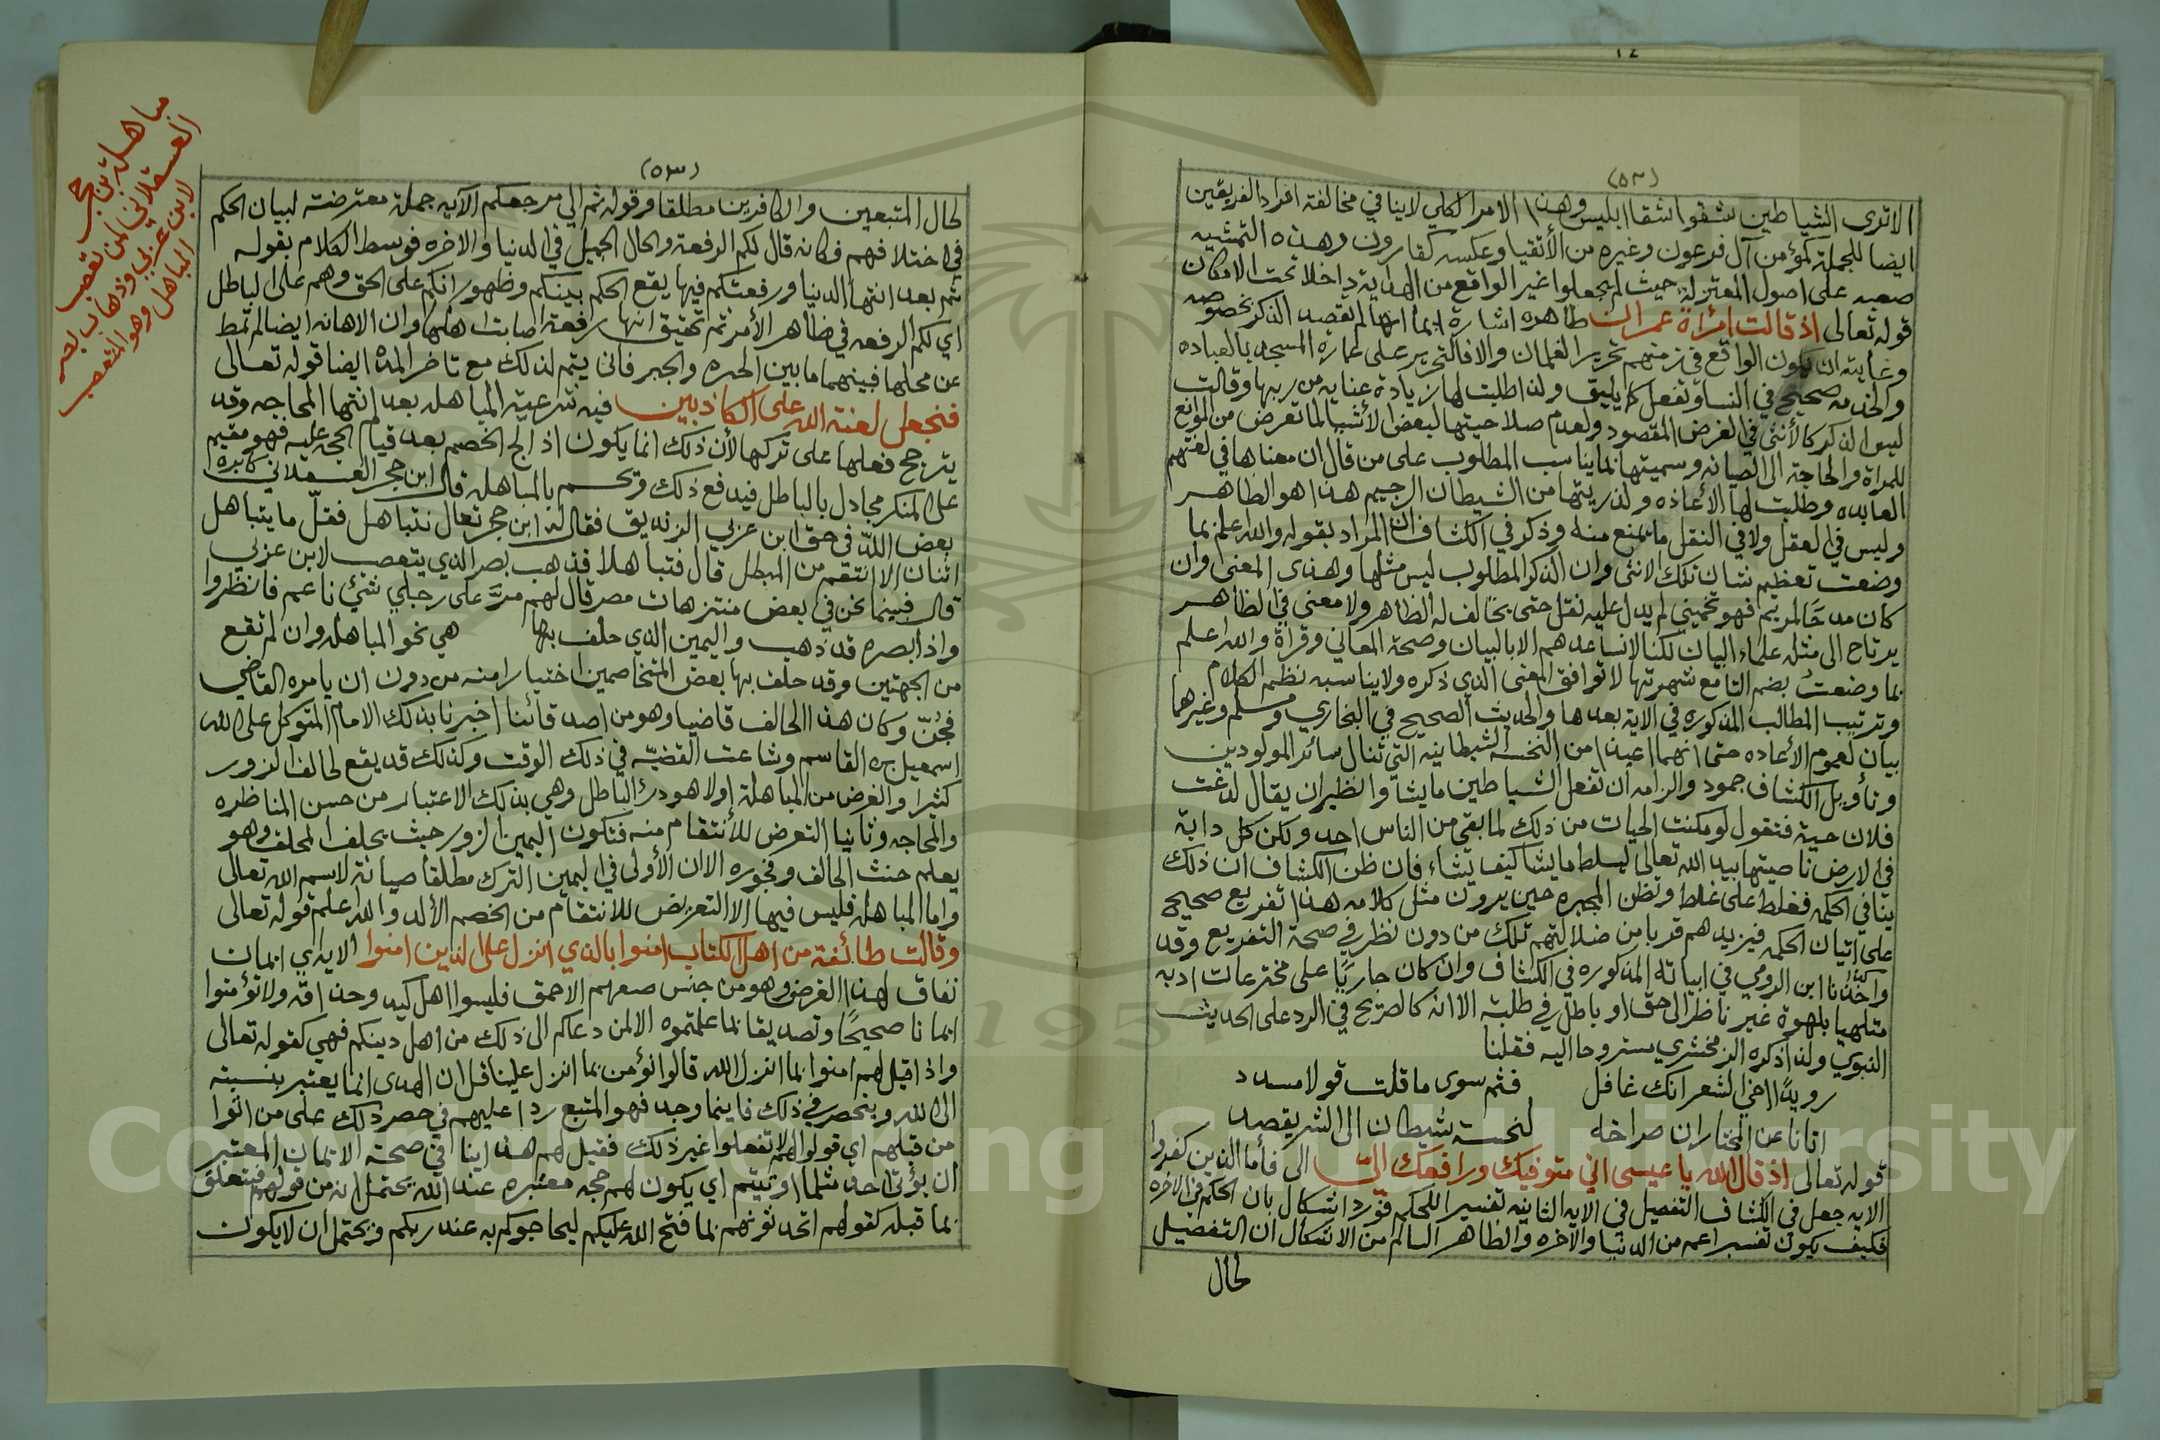 (٥٢)
الاترى الشياطين شقوا شقا ابليس وهذا الامر الكلي لاينافي مخالفة افراد الفريقين
ايضا للجملة كمؤمن آل فرعون وغيره من الأتقيا وعكسه كقارون وهذه التمشيه
صعبه على اصول المعتزلة حيث لم يجعلوا غير الواقع من الهداية داخلا تحت الامكان
قوله تعالى اذ قالت امرأة عمران ظاهره اشارة انها لم تقصد الذكر بخصوصه
وغايته ان يكون الواقع في زمنهم تحرير الغلمان والا فالتحرير على عمارة المسجد بالعباده
والخدمه صحيح في النسا وتفعل كل يليق ولذا طلبت لها زيادة عنايه من ربها وقالت
ليس الذكر كالأنثى في الغرض المقصود ولعدم صلاحيتها لبعض الأشيا لما تعرض من الموانع
للمراة والحاجة الى الصيانه وسميتها بما يناسب المطلوب على من قال ان معناها في لغتهم
العابده وطلبت لها الأعاذه ولذريتها من الشيطان الرجيم هذا هو الظاهر
وليس في العقل ولا في النقل ما يمنع منه وذكر في الكشاف ان المراد بقوله والله اعلم بما
وضعت تعظيم شان تلك الانثى وان الذكر المطلوب ليس مثلها وهذى المعنى وان
كان مدحًا لمريم فهو تخميني لم يدل عليه نقل حتى يخالف له الظاهر ولا معنى في الظاهر
يرتاح الى مثله علماء البيان لكنا لانساعدهم الا بالبيان وصحة المعاني وقراة والله اعلم
بما وضعتُ بضم التا مع شهرتها لا توافق المعنى الذي ذكره ولايناسبه نظم الكلام
وترتيب المطالب المذكوره في الايه بعدها والحديث الصحيح في البخاري ومسلم وغيرهما
بيان لعموم الأعاذه حتى انهما اعيذا من النخسة الشيطانيه التي تنال سائر المولودين
وتأويل الكشاف جمود والزامه ان تفعل الشياطين مايشا والنظير ان يقال لدغت
فلان حية فتقول لو مكنت الحيات من ذلك لما بقي من الناس احد ولكن كل دابة
في الارض ناصيتها بيد الله تعالى يسلط مايشا كيف يشاء فان ظن الكشاف ان ذلك
ينافي الحكمه فغلط على غلط وتظن المجبره حين يرون مثل كلامه هذا تفريع صحيح
على اتيان الحكمه فيزيدهم قربا من ضلالتهم تلك من دون نظر في صحة التفريع وقد
واخذنا ابن الرومي في ابياته المذكوره في الكشاف وان كان جاريًا على مخترعات ادبه
متلهيا بلهوة غير ناظر الى حق او باطل في طلبته الا انه كالصريح في الرد على الحديث
النبوي ولذا ذكره الزمخشري مستروحا اليه فقلنا
رويدًا اخي لشعر انك غافل فثم سوى ماقلت قولا مسدد
اتانا عن المختار ان صراخه لنخسة شيطان الى الشر يقصد
قوله تعالى اذ قال الله يا عيسى اني متوفيك ورافعك الي الى فأما الذين كفروا
الايه جعل في الكشاف التفصيل في الايه الثانيه تفسير اللحكم فورد اشكال بان الحكم في الاخره
فكيف يكون تفسير اعم من الدنيا والاخره والظاهر السالم من الاشكال ان التفصيل
لحال
(٥٣)
لحال المتبعين والكافرين مطلقا وقوله ثم الي مرجعكم الآيه جملة معترضة لبيان الحكم
في اختلافهم فكانه قال لكم الرفعة والحال الجميل في الدنيا والاخره فوسط الكلام بقوله
ثم بعد انتها الدنيا ورفعتكم فيها يقع الحكم بينكم وظهور انكم على الحق وهم على الباطل
اي لكم الرفعه في ظاهر الأمر ثم تحقيق انها رفعة اصابت اهلها وان الاهانه ايضا لم تمط
عن محلها فبينهما مابين الحيره والجبر فانى يتم لذلك مع تاخر المده ايضا قوله تعالى
فنجعل لعنة الله على الكاذبين فيه شرعية المباهله بعد انتها المحاجه وقد
يترجح فعلها على تركها لأن ذلك انما يكون اذا لج الخصم بعد قيام الحجه عليه فهو مقيم
على المنكر مجادل بالباطل فيدفع ذلك ويحسم بالمباهله قال ابن حجر العسقلاني كابره
بعض اللدّ في حق ابن عربي الزنديق فقال له ابن حجر تعال نتباهل فقلّ مايتباهل
اثنان الا انتقم من المبطل قال فتباهلا فذهب بصر الذي يتعصب لابن عربي
قال فبينما نحن في بعض منتزهات مصر قال لهم مرّ على رجلي شيئ ناعم فانظروا
واذا بصره قد ذهب واليمين الذي حلف بها هي نحو المباهله وان لم تقع
من الجهتين وقد حلف بها بعض المتخاصمين اختيارا منه من دون ان يامره القاضي
فجُنّ وكان هذا الحالف قاضيا وهو من اصدقائنا اخبرنا بذلك الامام المتوكل على الله
اسمعيل بن القاسم وشاعت القضيّه في ذلك الوقت وكذلك قد يقع لحالف الزور
كثيرا والغرض من المباهلة اولا هو درء الباطل وهي بذلك الاعتبار من حسن المناظره
والمحاجه وثانيا التعرض للأنتقام منه فتكون اليمين الزور حيث يحلف المحلف وهو
يعلم حنث الحالف وفجوره الا ان الأولى في اليمين الترك مطلقا صيانة لاسم الله تعالى
واما المباهله فليس فيها الا التعريض للانتقام من الخصم الألد والله اعلم قوله تعالى
وقالت طائفة من اهل الكتاب امنوا بالذي انزل على الذين امنوا الايه اي ايمان
نفاق لهذا الغرض وهو من جنس صنعهم الاحمق فليسوا اهل كيد وحذاقة ولا تؤمنوا
ايمانا صحيحًا وتصديقا بما علمتموه الا لمن دعاكم الى ذلك من اهل دينكم فهي كقوله تعالى
واذا قيل لهم امنوا بما انزل الله قالوا نؤمن بما انزل علينا قل ان الهدى انما يعتبر بنسبته
الى الله وينحصر في ذلك فاينما وجد فهو المتبع ردا عليهم في حصر ذلك على من اتوا
من قبلهم اي قولوا لهم لا تفعلوا غير ذلك فقيل لهم هذا ينافي صحة الايمان المعتبر
ان يؤتى احد مثلما اوتيتم اي يكون لهم حجه معتبره عند الله يحتمل انه من قولهم فيتعلق
بما قبله كقولهم اتحدثونهم بما فتح الله عليكم ليحاجوكم به عند ربكم ويحتمل ان لا يكون
مباهلة بن حجر
العسقلاني لمن تعصب
لابن عربي وذهاب بصر
المباهل وهو المتعصب
Copyright © King Saud University
1957